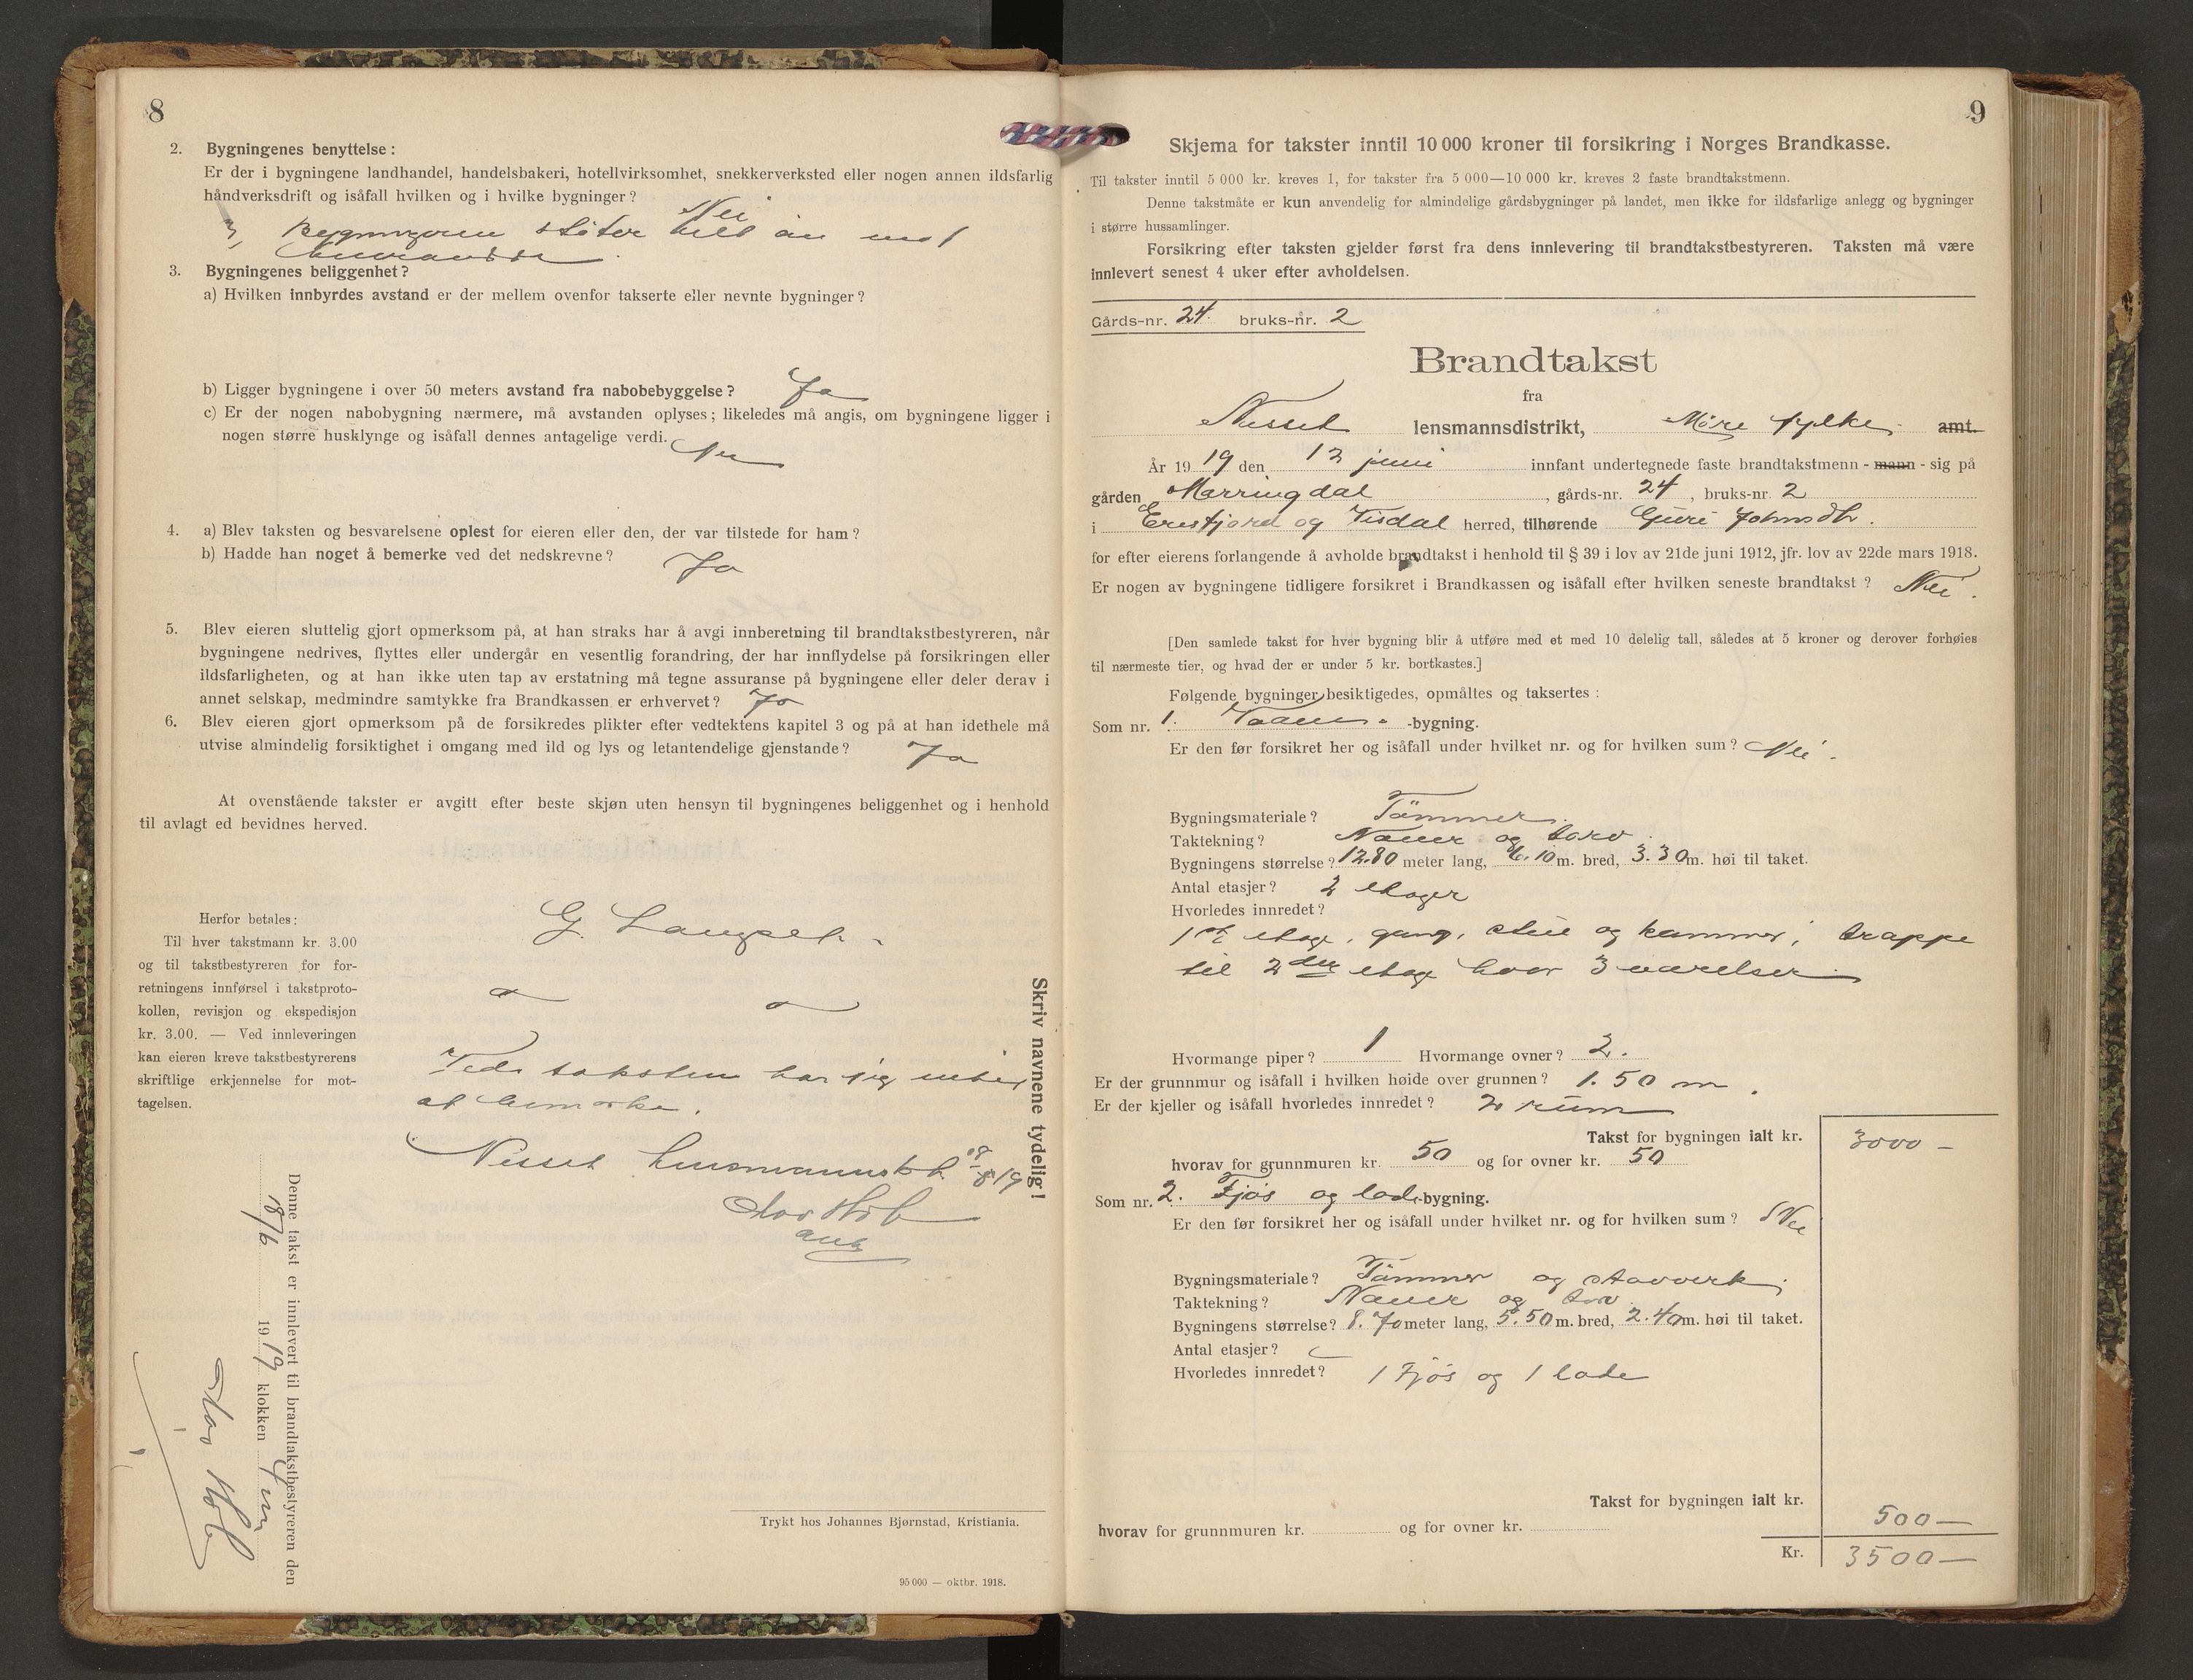 8
2. Bygningenes benyttelse:
Er der i bygningene landhandel, handelsbakeri, hotellvirksomhet, snekkerverksted eller nogen annen ildsfarlig
håndverksdrift og isåfall hvilken og i hvilke bygninger?
Nei
3, Bygningeren støter helt an mot
3. Bygningenes beliggenhet?
a) Hvilken innbyrdes avstand er der mellem ovenfor takserte eller nevnte bygninger?
b) Ligger bygningene i over 50 meters avstand fra nabobebyggelse? Ja
c) Er der nogen nabobygning nærmere, må avstanden oplyses; likeledes må angis, om bygningene ligger i
nogen større husklynge og isåfall dennes antagelige verdi. Nei
4. a) Blev taksten og besvarelsene oplest for eieren eller den, der var tilstede for ham?
b) Hadde han noget å bemerke ved det nedskrevne? Ja
5. Blev eieren sluttelig gjort opmerksom på, at han straks har å avgi innberetning til brandtakstbestyreren, når
bygningene nedrives, flyttes eller undergår en vesentlig forandring, der har innflydelse på forsikringen eller
ildsfarligheten, og at han ikke uten tap av erstatning må tegne assuranse på bygningene eller deler derav i
annet selskap, medmindre samtykke fra Brandkassen er erhvervet? Ja
6. Blev eieren gjort opmerksom på de forsikredes plikter efter vedtektens kapitel 3 og på at han idethele må
utvise almindelig forsiktighet i omgang med ild og lys og letantendelige gjenstande? Ja
At ovenstående takster er avgitt efter beste skjøn uten hensyn til bygningenes beliggenhet og i henhold
til avlagt ed bevidnes herved.
G. Langset.
Herfor betales:
Til hver takstmann kr. 3.00
og til takstbestyreren for for-
retningens innførsel i takstproto-
kollen, revisjon og ekspedisjon
kr. 3.00. — Ved innleveringen
kan eieren kreve takstbestyrerens
skriftlige erkjennelse for mot-
tagelsen.
Skriv navnene tydelig!
Veds taksten har jeg intet
at bemerke.
Nesset lensmannsk. 18/6 19
Denne takst er innlevert til brandtakstbestyreren den
18/6 1919 klokken
Trykt hos Johannes Bjørnstad, Kristiania.
95 000 — oktbr. 1918.
9
Skjema for takster inntil 10 000 kroner til forsikring i Norges Brandkasse.
Til takster inntil 5 000 kr. kreves 1, for takster fra 5 000—10 000 kr. kreves 2 faste brandtakstmenn.
Denne takstmåte er kun anvendelig for almindelige gårdsbygninger på landet, men ikke for ildsfarlige anlegg og bygninger
i større hussamlinger.
Forsikring efter taksten gjelder først fra dens innlevering til brandtakstbestyreren. Taksten må være
innlevert senest 4 uker efter avholdelsen.
Gårds-nr. 24. bruks-nr. 2
Brandtakst
fra
Nesset lensmannsdistrikt, Møre fylke amt.
År 1919 den 12 juni innfant undertegnede faste brandtakstmenn - mann - sig på
gården Marringdal, gårds-nr. 24, bruks-nr. 2
i Eresfjord og Visdal herred, tilhørende Guri Johnsdtr.
for efter eierens forlangende å avholde brandtakst i henhold til § 39 i lov av 21de juni 1912, jfr. lov av 22de mars 1918.
Er nogen av bygningene tidligere forsikret i Brandkassen og isåfall efter hvilken seneste brandtakst? Nei.
[Den samlede takst for hver bygning blir å utføre med et med 10 delelig tall, således at 5 kroner og derover forhøies
til nærmeste tier, og hvad der er under 5 kr. bortkastes.]
Følgende bygninger besiktigedes, opmåltes og taksertes:
Som nr. 1. Vaanings-bygning.
Er den før forsikret her og isåfall under hvilket nr. og for hvilken sum? Nei.
Bygningsmateriale? Tømmer.
Taktekning? Næver og torv
Bygningens størrelse? 12.80 meter lang, 6.10 m. bred, 3.30 m. høi til taket.
Antal etasjer? 2 etager
Hvorledes innredet?
1ste etage, gang, stue og kammer, trappe
til 2den etage hvor 3 værelser
Hvormange piper? 1 Hvormange ovner? 2.
Er der grunnmur og isåfall i hvilken høide over grunnen? 1.50 m.
Er der kjeller og isåfall hvorledes innredet? 2 rum
Takst for bygningen ialt kr. 3000 -
hvorav for grunnmuren kr. 50 og for ovner kr. 50
Som nr. 2. Fjøs og lade-bygning.
Er den før forsikret her og isåfall under hvilket nr. og for hvilken sum? Nei
Bygningsmateriale? Tømmer og stavverk
Taktekning? Næver og torv
Bygningens størrelse? 8.70 meter lang, 5.50 m. bred, 2.40 m. høi til taket.
Antal etasjer?
Hvorledes innredet? 1 Fjøs og 1 lade
Takst for bygningen ialt kr. 500 —
hvorav for grunnmuren kr. og for ovner kr.
Kr. 3500 —